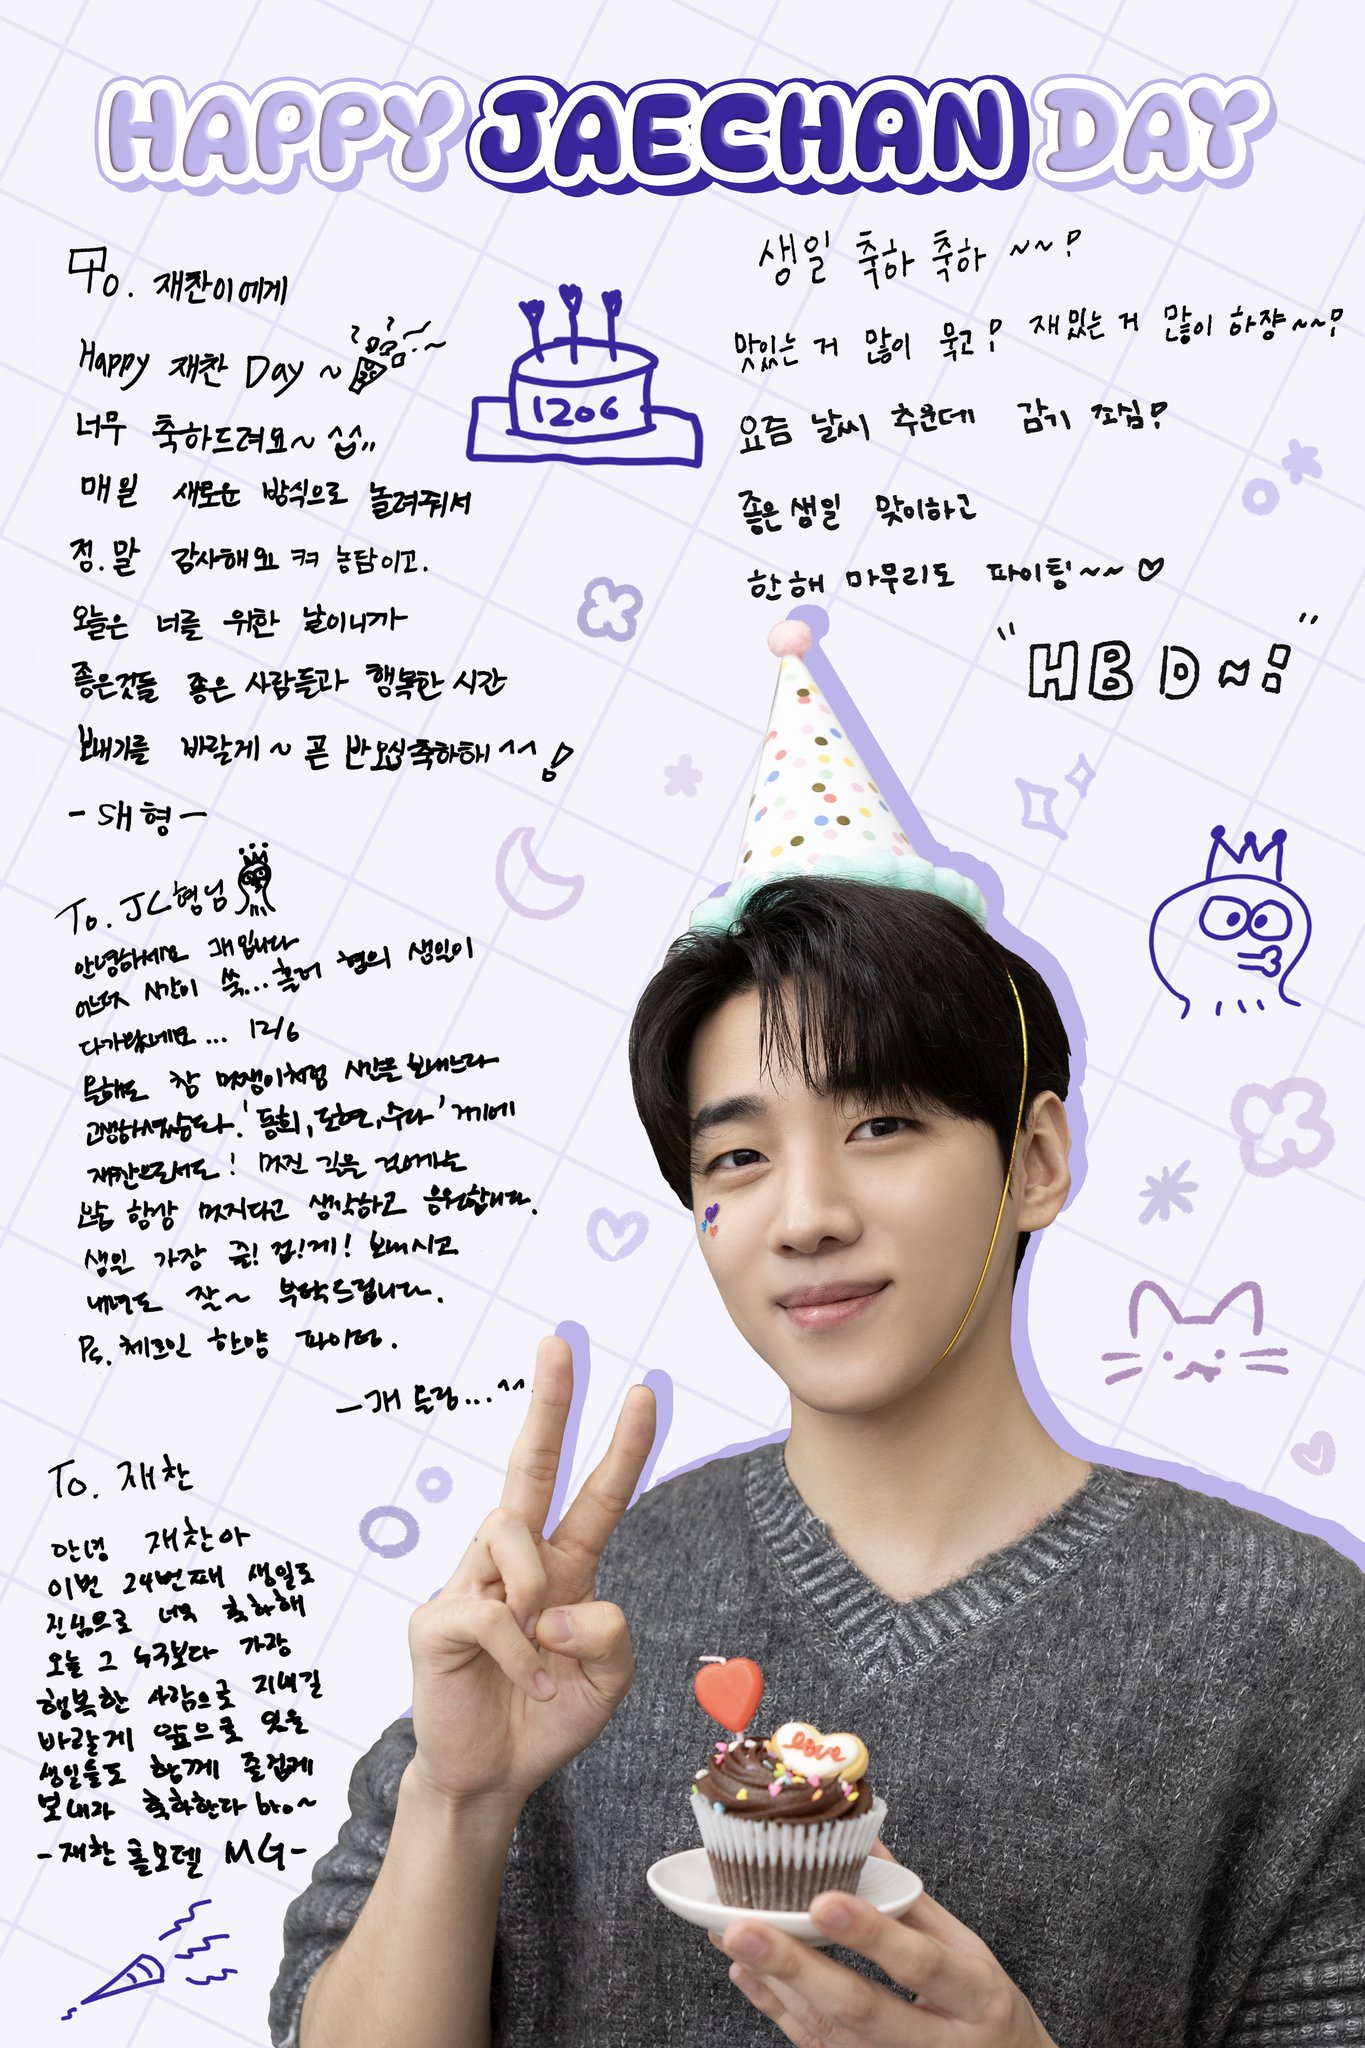 HAPPY JAECHAN DAY
To. 재찬이에게
Happy 재찬 Day ~
너무 축하드려요~
매일 새로운 방식으로 놀려줘서
정.말 감사해요 ㅋㅋ 농담이고.
오늘은 너를 위한 날이니까
좋은것들 좋은 사람들과 행복한 시간
보내기를 바랄게~ 곧 반오십축하해^^!
- SH형 -
1206
생일 축하 축하 ~~!
맛있는 거 많이 묵고! 재밌는 거 많이 하쟝~~!
요즘 날씨 추운데 감기 조심!
좋은 생일 맞이하고
한 해 마무리도 파이팅~~♡
"HBD~:"
To. JC형님
안녕하세요 개입니다
어느덧 시간이 쑥... 흘러 형의 생일이
다가왔네요... 12/6
올해도 참 멋쟁이처럼 시간을 보내느라
고생하셨습니다. '동희, 도현, 주다' 거기에
재찬으로서도! 멋진 길을 걸어가는
항상 멋지다고 생각하고 응원합니다.
생일 가장 즐!겁!게! 보내시고
내년도 잘~ 부탁드립니다.
Ps. 한양 파이팅.
- 개 올림...^^
To. 재찬
안녕 재찬아
이번 24번째 생일도
진심으로 너무 축하해
오늘 그 누구보다 가장
행복한 사람으로 지내길
바랄게 앞으로 있을
생일들도 함께 즐겁게
보내자 축하한다 bro~
-재찬 롤모델 MG-
Love